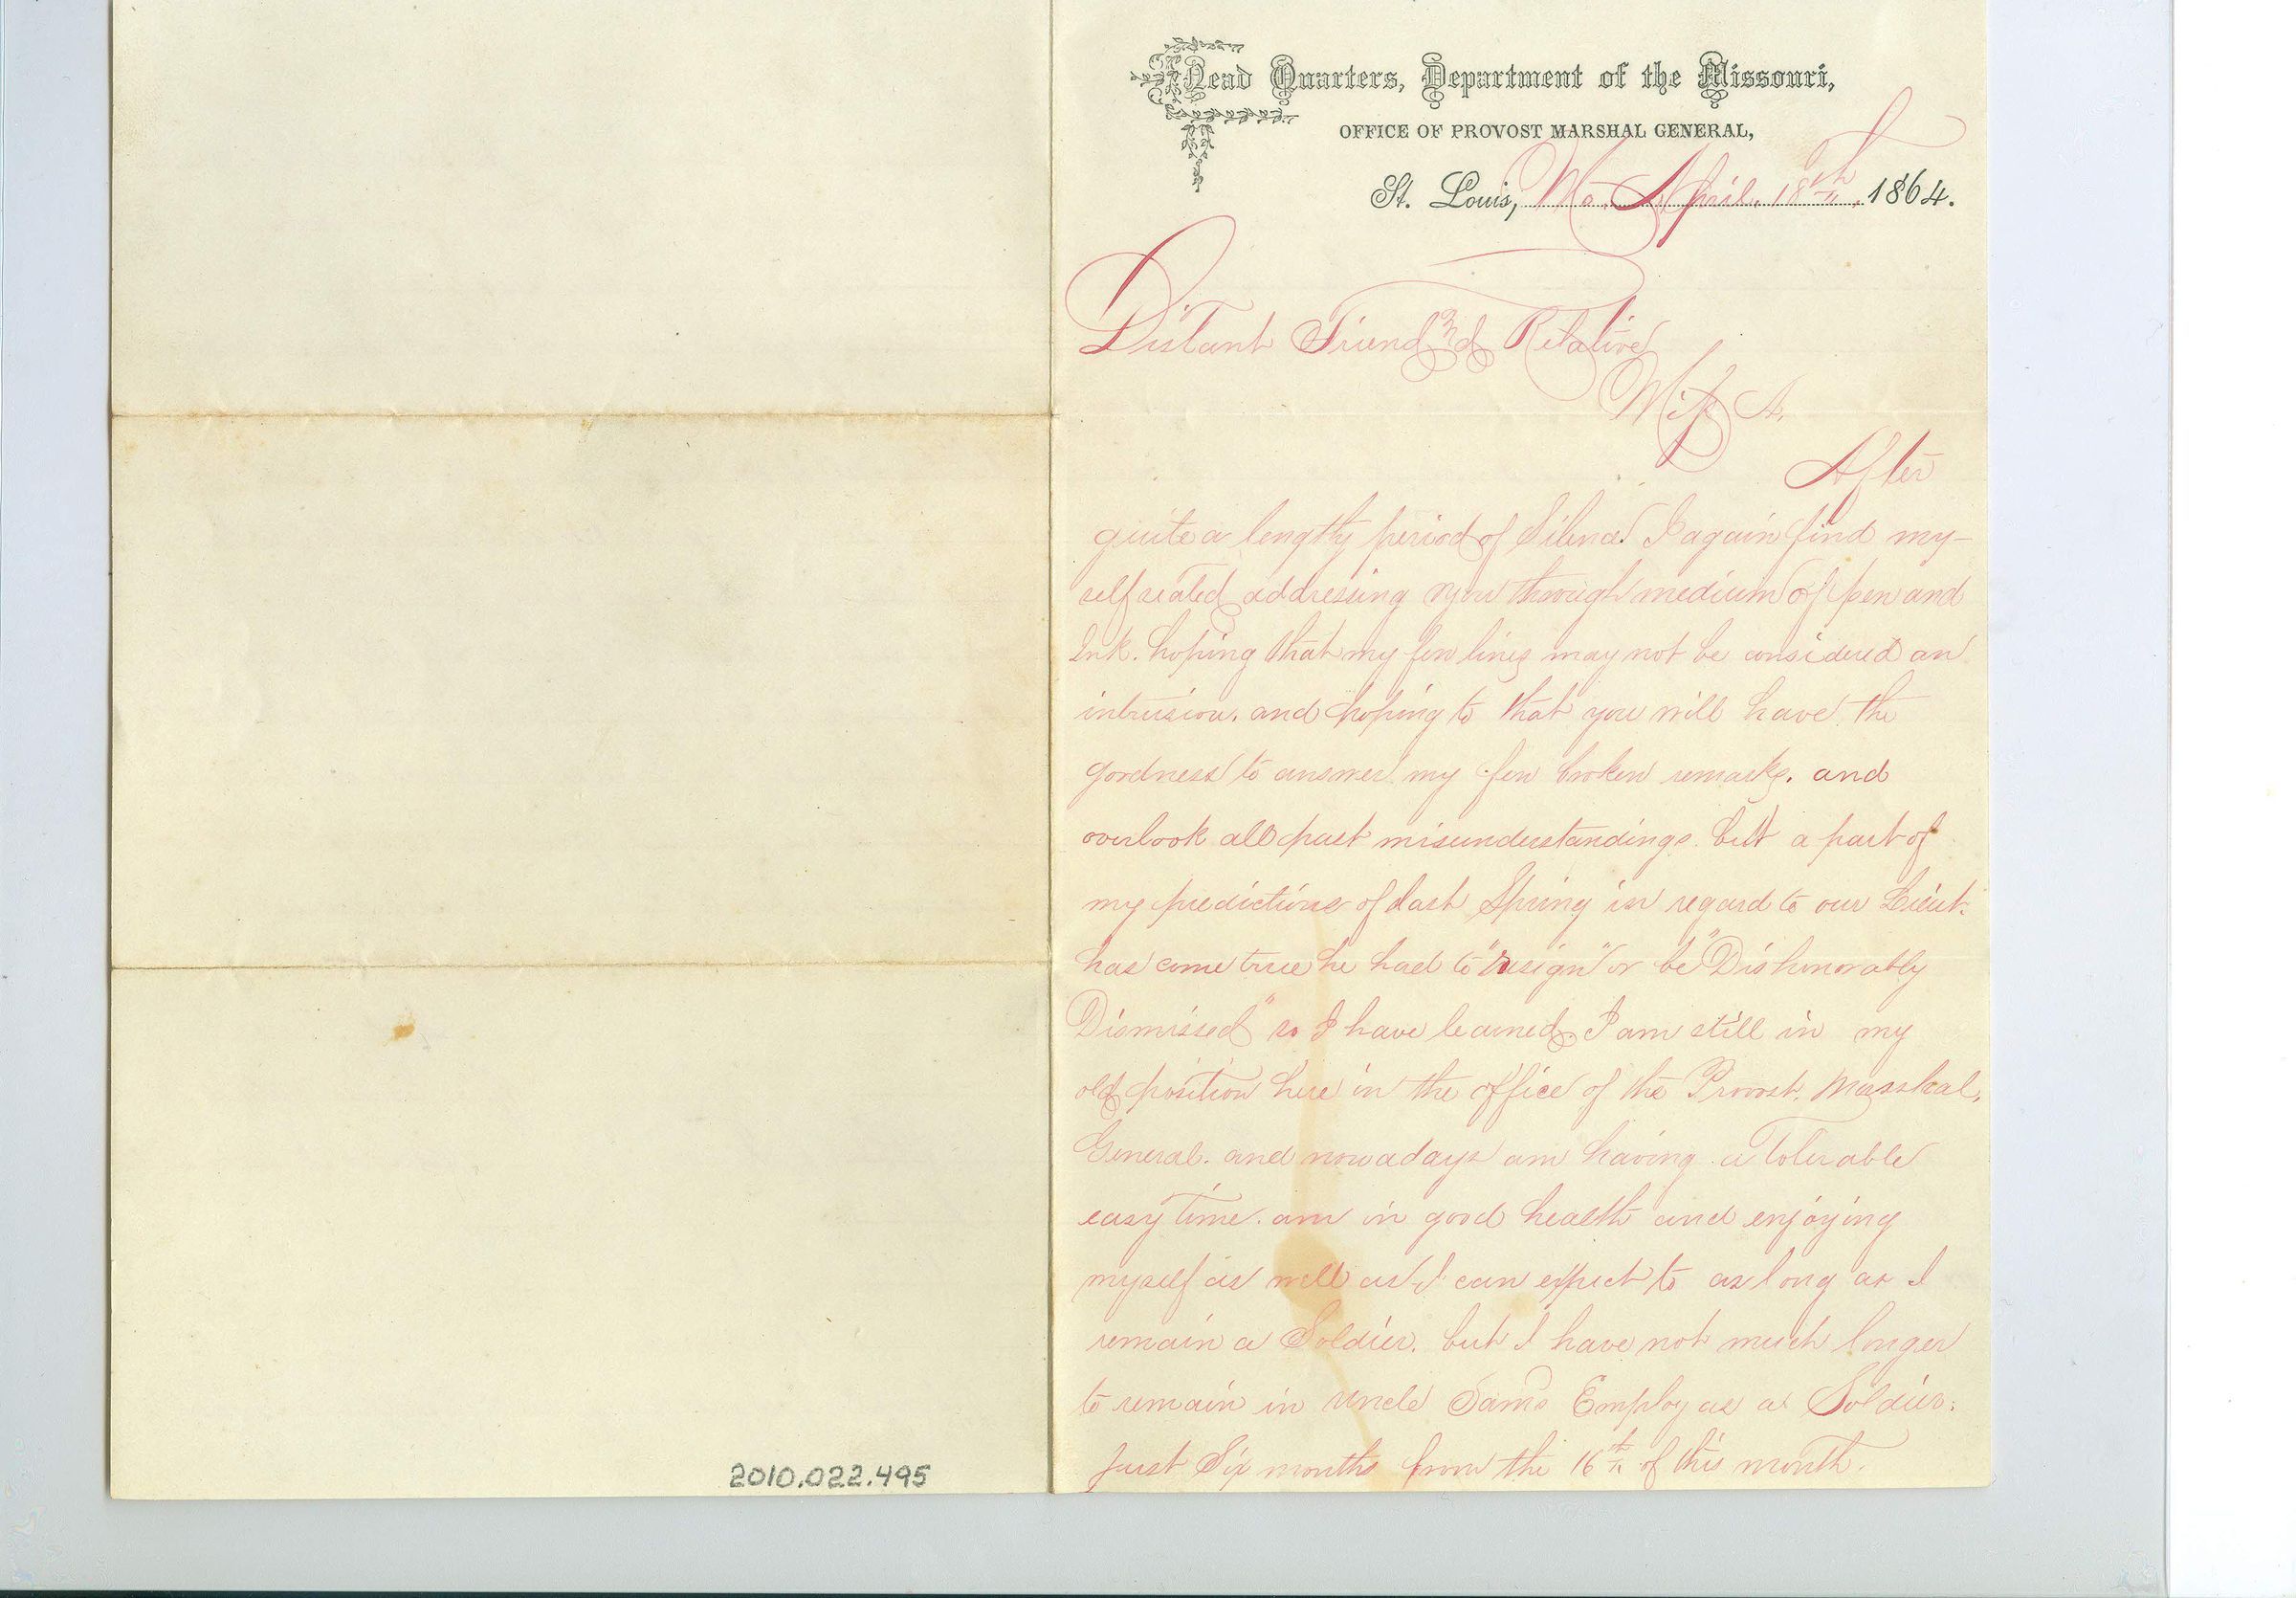 Head Quarters, Department of the Missouri,
OFFICE OF PROVOST MARSHAL GENERAL,
St. Louis, Mo. April. 18th 1864.
Distant Friend and Relative
Miss A.
After
quite a lengthy period of Silence I again find my-
self seated addressing you through medium of pen and
Ink. hoping that my few lines may not be considered an
intrusion. and hoping to that you will have the
goodness to answer my few broken remarks. and
overlook all past misunderstandings. but a part of
my predictions of last Spring in regard to our Lieut.
has come true he had to "resign" or be "Dishonorably
Dismissed" so I have learned. I am still in my
old position here in the office of the Provost. Marshal.
General. and nowadays am having a tolerable
easy time. am in good health and enjoying
myself as well as I can expect to as long as I
remain a Soldier. but I have not much longer
to remain in Uncle Sams Employ as a Soldier.
Just Six months from the 16th of this month.
2010.022.495